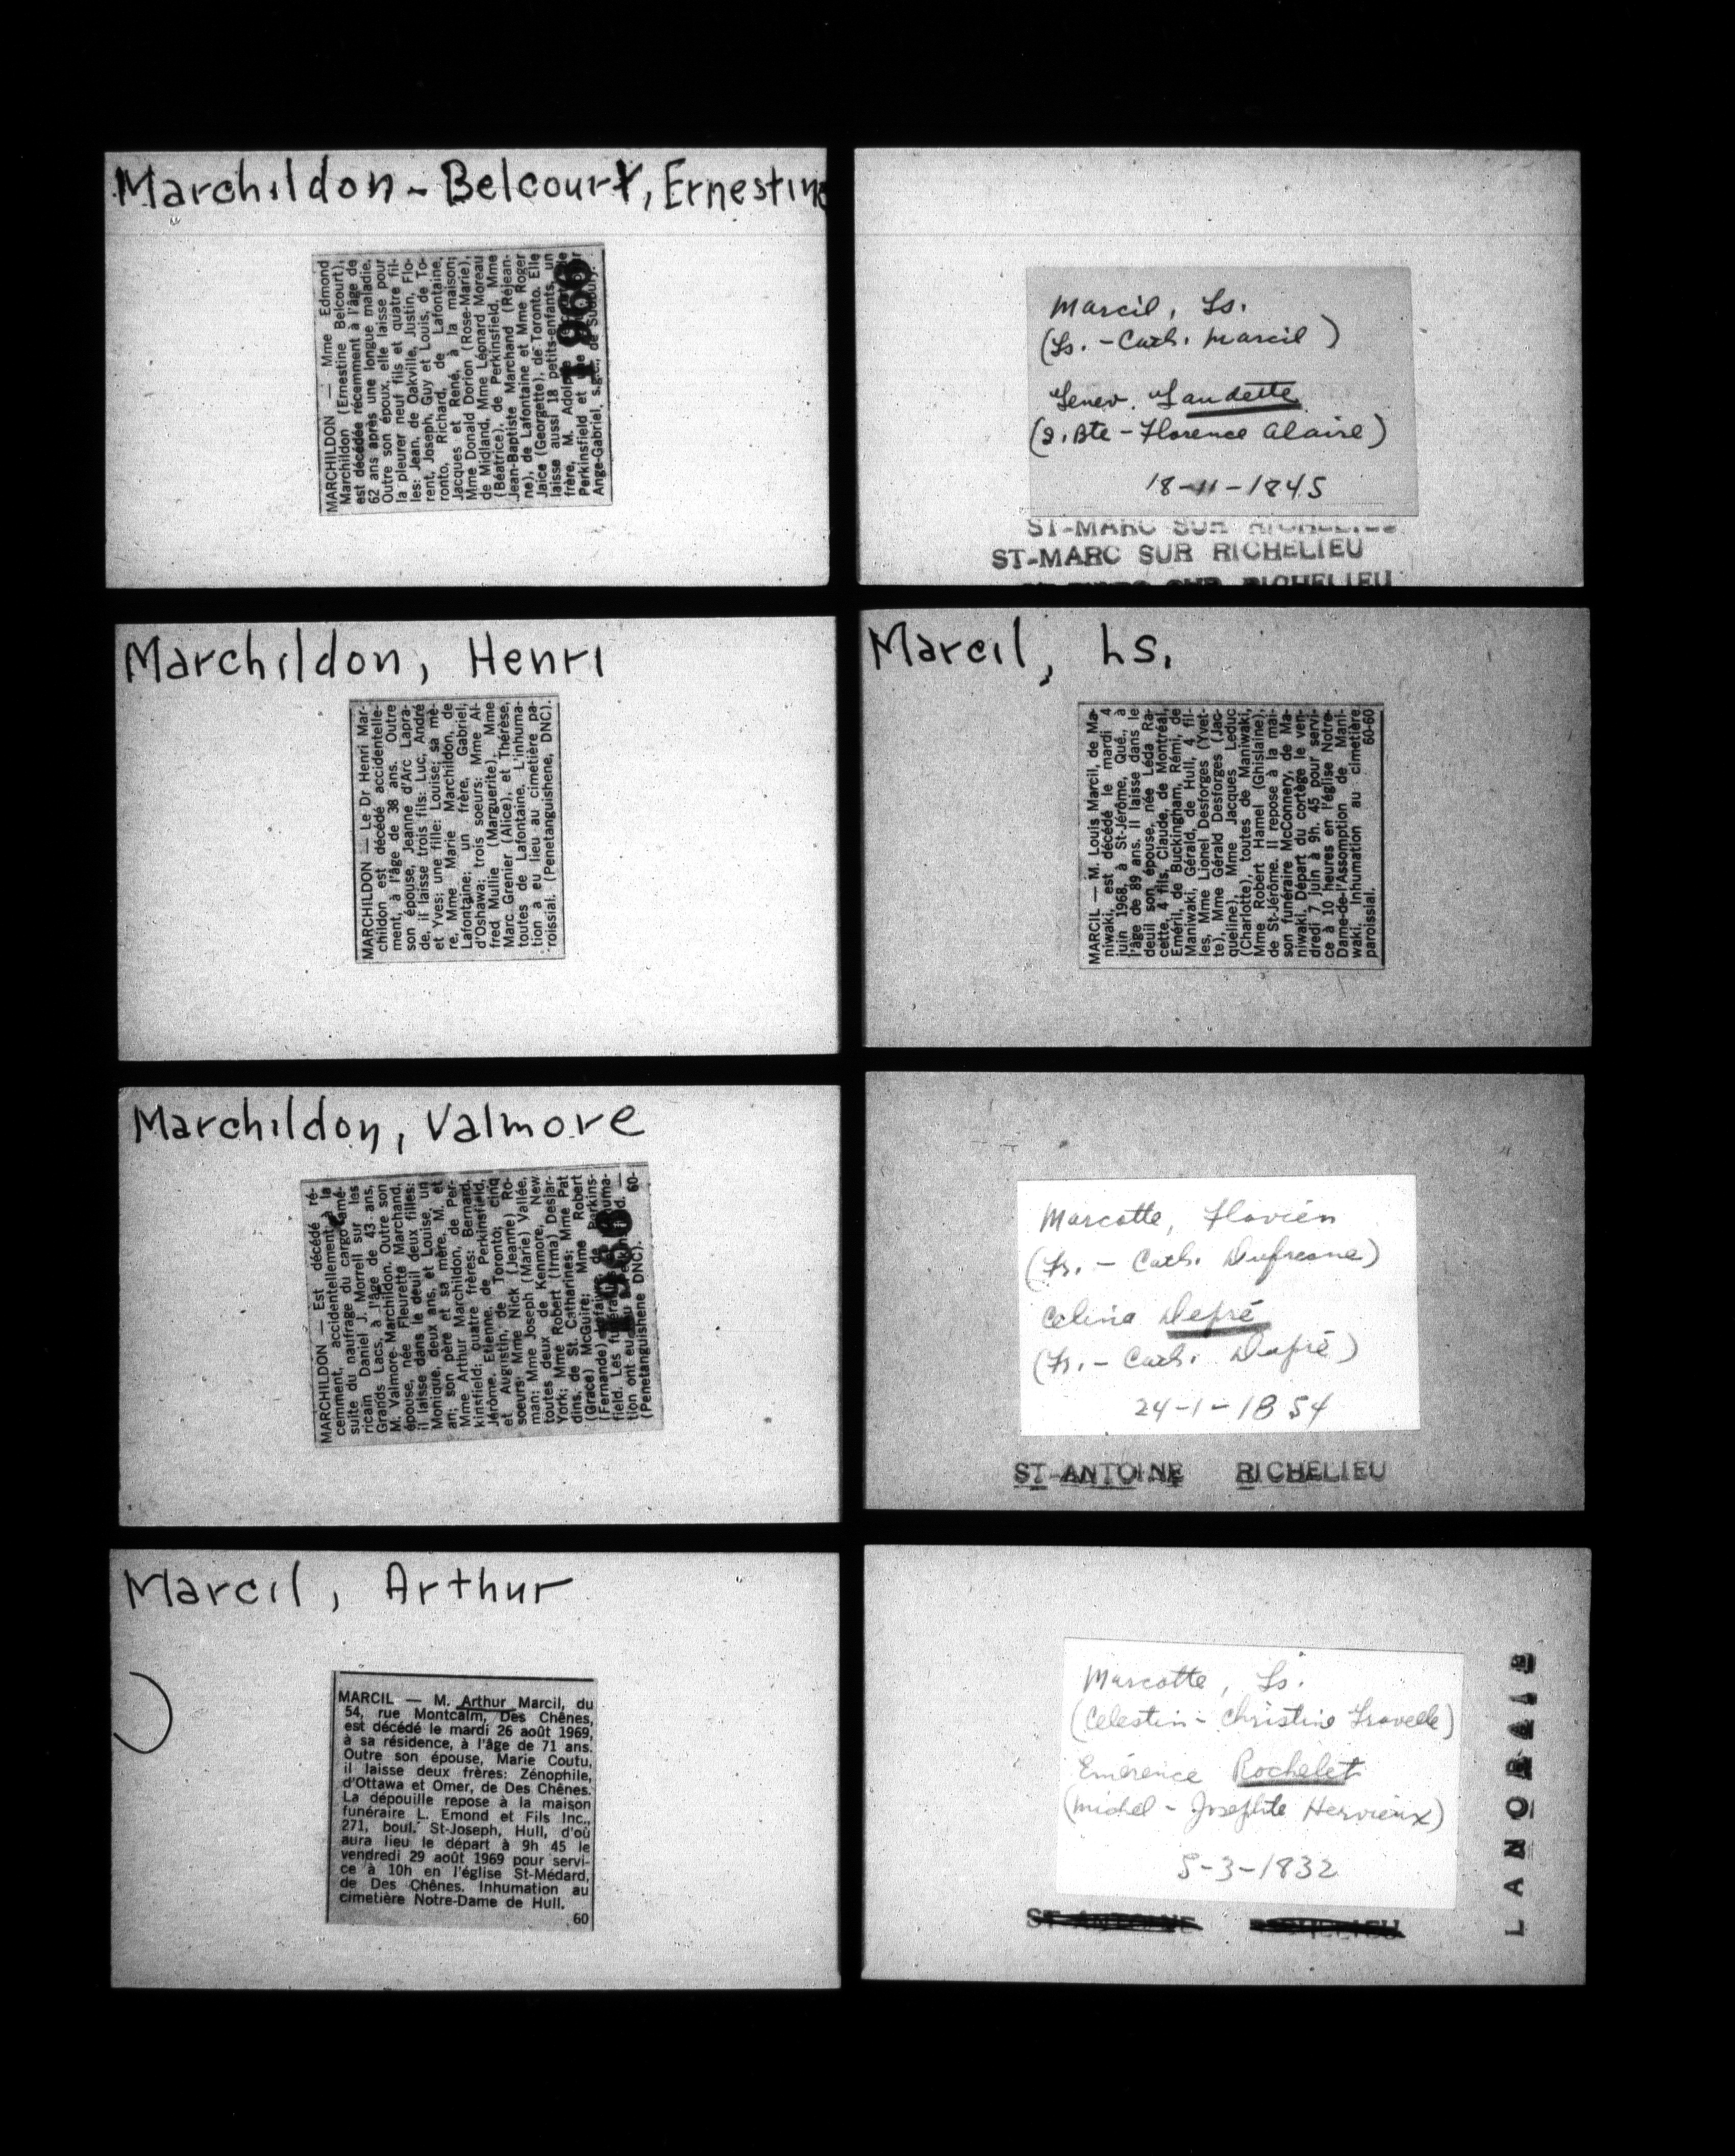 Marchildon - Belcourt, Ernestine
MARCHILDON — Mme Edmond
Marchildon (Ernestine Belcourt),
est décédée récemment à l'âge de
62 ans après une longue maladie.
Outre son époux, elle laisse pour
la pleurer neuf fils et quatre fil-
les: Jean, de Oakville, Justin, Flo-
rent, Joseph, Guy et Louis, de To-
ronto, Richard, de Lafontaine,
Jacques et René, à la maison;
Mme Donald Dorion (Rose-Marie),
de Midland, Mme Léonard Moreau
(Béatrice), de Perkinsfield, Mme
Jean-Baptiste Marchand (Réjean-
ne), de Lafontaine et Mme Roger
Jaice (Georgette), de Toronto. Elle
laisse aussi 18 petits-enfants, un
frère, M. Adolphe
Perkinsfield et
Ange-Gabriel, s.g.c., de Sudbury.
1966
Marchildon, Henri
MARCHILDON — Le Dr Henri Mar-
childon est décédé accidentelle-
ment, à l'âge de 38 ans. Outre
son épouse, Jeanne d'Arc Lapra-
de, il laisse trois fils: Luc, André
et Yves; une fille: Louise; sa mè-
re, Mme Marie Marchildon, de
Lafontaine; un frère, Gabriel,
d'Oshawa; trois soeurs: Mme Al-
fred Mullie (Marguerite), Mme
Marc Grenier (Alice), et Thérèse,
toutes de Lafontaine. L'inhuma-
tion a eu lieu au cimetière pa-
roissial. (Penetanguishene, DNC).
Marchildon, Valmore
MARCHILDON — Est décédé ré-
cemment, accidentellement à la
suite du naufrage du cargo amé-
ricain Daniel J. Morrell sur les
Grands Lacs, à l'âge de 43 ans,
M. Valmore Marchildon. Outre son
épouse, née Fleurette Marchand,
il laisse dans le deuil deux filles:
Monique, deux ans, et Louise, un
an; son père et sa mère, M. et
Mme Arthur Marchildon, de Per-
kinsfield; quatre frères: Bernard,
Jérôme, Etienne, de Perkinsfield,
et Augustin, de Toronto; cinq
soeurs: Mme Nick (Jeanne) Ro-
man; Mme Joseph (Marie) Vallée,
toutes deux de Kenmore, New
York; Mme Robert (Irma) Desjar-
dins, de St. Catharines; Mme Pat
(Grace) McGuire; Mme Robert
(Fernande) de Perkins-
field. Les
tion ont eu
(Penetanguishene DNC). 60-
Marcil, Arthur
MARCIL — M. Arthur Marcil, du
54, rue Montcalm, Des Chênes,
est décédé le mardi 26 août 1969,
à sa résidence, à l'âge de 71 ans.
Outre son épouse, Marie Coutu,
il laisse deux frères: Zénophile,
d'Ottawa et Omer, de Des Chênes.
La dépouille repose à la maison
funéraire L. Emond et Fils Inc.,
271, boul. St-Joseph, Hull, d'où
aura lieu le départ à 9h 45 le
vendredi 29 août 1969 pour servi-
ce à 10h en l'église St-Médard,
de Des Chênes. Inhumation au
cimetière Notre-Dame de Hull.
60
Marcil, Ls.
(Ls. - Cath. Marcil)
Genev. Gaudette
(J. Bte - Florence Alaire)
18-11-1845
ST-MARC SUR RICHELIEU
ST-MARC SUR RICHELIEU
ST-MARC SUR RICHELIEU
Marcil, Ls.
MARCIL — M. Louis Marcil, de Ma-
niwaki, est décédé le mardi 4
juin 1968, à St-Jérôme, Qué., à
l'âge de 89 ans. Il laisse dans le
deuil son épouse, née Léda Ra-
cette, 4 fils, Claude, de Montréal,
Eméril, de Buckingham, Rémi, de
Maniwaki, Gérald, de Hull, 4 fil-
les, Mme Lionel Desforges (Yvet-
te), Mme Gérald Desforges (Jac-
queline), Mme Jacques Leduc
(Charlotte), toutes de Maniwaki,
Mme Robert Hamel (Ghislaine),
de St-Jérôme. Il repose à la mai-
son funéraire McConnery, de Ma-
niwaki. Départ du cortège le ven-
dredi 7 juin à 9h. 45 pour servi-
ce à 10 heures en l'église Notre-
Dame-de-l'Assomption de Mani-
waki. Inhumation au cimetière
paroissial. 60-60
Marcotte, Flavien
(Fr. - Cath. Dufresne)
Celina Depré
(Fr. - Cath. Dupré)
24-1-1854
ST-ANTOINE RICHELIEU
Marcotte, Ls.
(Celestin - Christine Fravelle)
Emérence Rochelet
(Michel - Josephte Hervieux)
5-3-1832
ST-ANTOINE RICHELIEU
LANORAIE